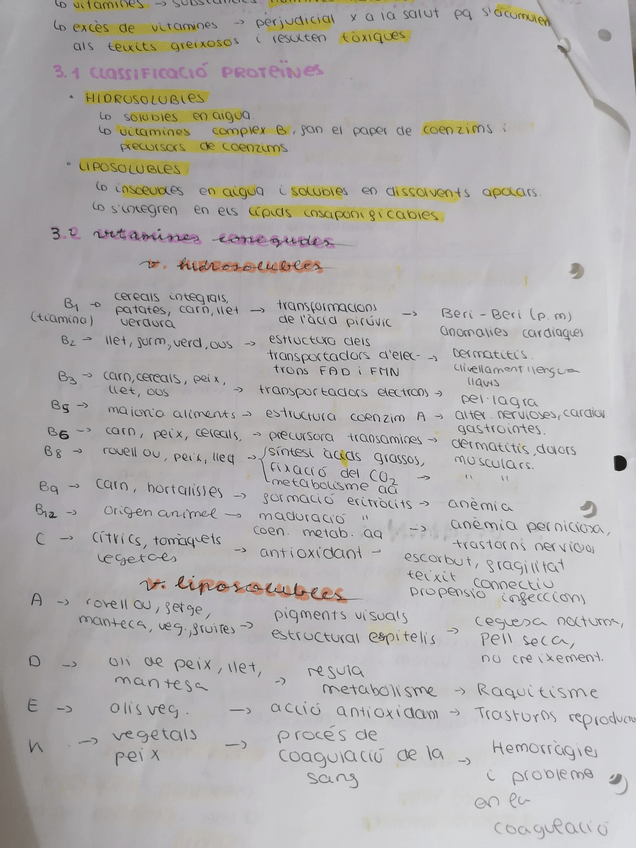 ↳ vitamines → substàncies
↳ excès de vitamines → perjudicial x a la salut pq s'acumulen
als teixits greixosos i resulten tòxiques
3.1 CLASSIFICACIÓ PROTEÏNES
• HIDROSOLUBLES
↳ solubles en aigua
↳ vitamines complex B, fan el paper de coenzims i
precursors de coenzims
• LIPOSOLUBLES
↳ insolubles en aigua i solubles en dissolvents apolars.
↳ s'integren en els lípids insaponificables.
3.2 vitamines conegudes
v. hidrosolubles
B1 → cereals integrals, patates, carn, llet verdura → transformacions de l'àcid pirúvic → Beri-Beri (p.m) anomalies cardiaques
(tiamina)
B2 → llet, form, verd, ous → estructura dels transportadors d'elec-trons FAD i FMN → Dermatitis. clivellament llengua llavis
B3 → carn, cereals, peix, llet, ous → transportadors electrons → pel·lagra
B5 → majoria aliments → estructura coenzim A → alter. nervioses, cardiov gastrointes.
B6 → carn, peix, cereals, → precursora transamines → dermatitis, dolors musculars.
B8 → rovell ou, peix, lleg → síntesi àcids grassos, fixació del CO2 metabolisme aa → " "
B9 → carn, hortalisses → formació eritròcits → anèmia
B12 → origen animel → maduració " coen. metab. aa → anèmia perniciosa, trastorns nerviosos
C → cítrics, tomàquets vegetals → antioxidant → escorbut, fragilitat teixit connectiu propensió infeccions
v. liposolubles
A → rovell ou, fetge, manteca, veg, fruites → pigments visuals estructural espitelis → ceguesa nocturna, pell seca, no creixement.
D → oli de peix, llet, mantega → regula metabolisme → Raquitisme
E → olis veg. → acció antioxidam → Trastorns reproduc
K → vegetals peix → procés de coagulació de la sang → Hemorràgies i probleme en la coagulació